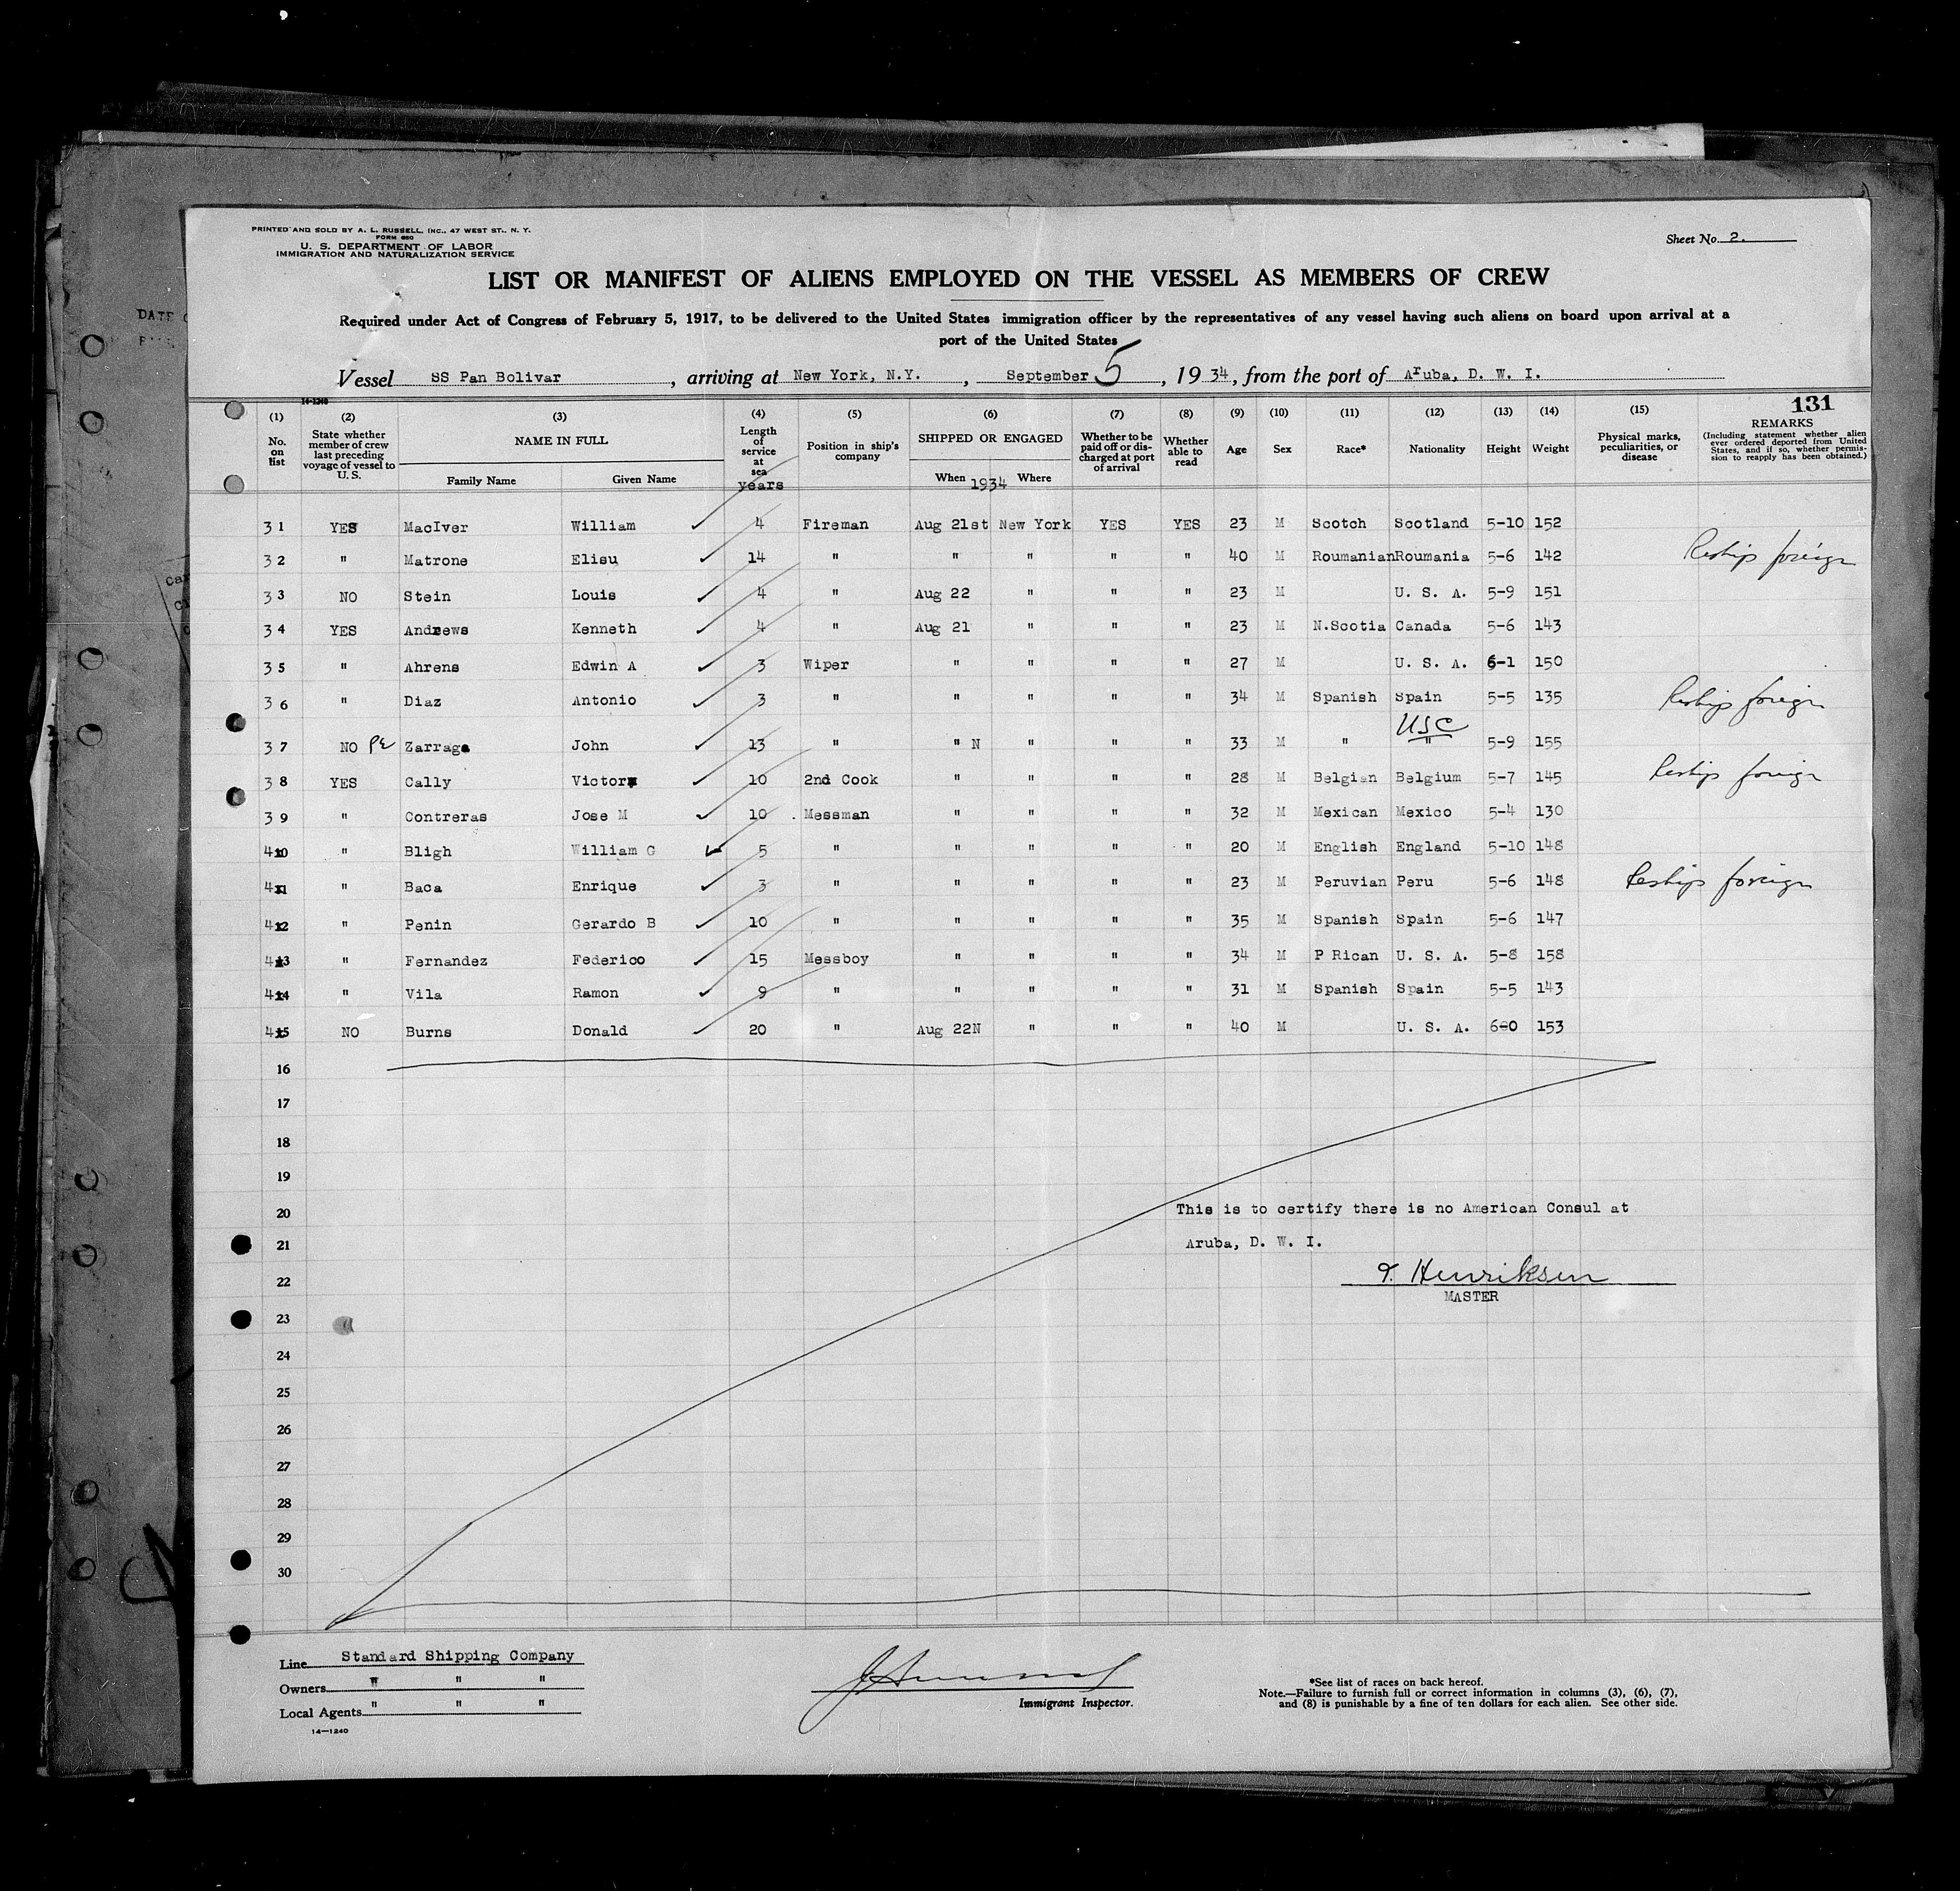 PRINTED AND SOLD BY A. L. RUSSELL, INC., 47 WEST ST., N. Y.
FORM 680
U. S. DEPARTMENT OF LABOR
IMMIGRATION AND NATURALIZATION SERVICE
Sheet No. 2.
LIST OR MANIFEST OF ALIENS EMPLOYED ON THE VESSEL AS MEMBERS OF CREW
Required under Act of Congress of February 5, 1917, to be delivered to the United States immigration officer by the representatives of any vessel having such aliens on board upon arrival at a
port of the United States
Vessel SS Pan Bolivar, arriving at New York, N.Y., September 5, 1934, from the port of Aruba, D. W. I.
14-1240
131
(1) (2) (3) (4) (5) (6) (7) (8) (9) (10) (11) (12) (13) (14) (15)
No. on list
State whether member of crew last preceding voyage of vessel to U. S.
NAME IN FULL
Family Name Given Name
Length of service at sea years
Position in ship's company
SHIPPED OR ENGAGED
When 1934 Where
Whether to be paid off or discharged at port of arrival
Whether able to read
Age
Sex
Race*
Nationality
Height
Weight
Physical marks, peculiarities, or disease
REMARKS
(Including statement whether alien ever ordered deported from United States, and if so, whether permission to reapply has been obtained.)
31 YES MacIver William 4 Fireman Aug 21st New York YES YES 23 M Scotch Scotland 5-10 152
32 " Matrone Elisu 14 " " " " " 40 M Roumanian Roumania 5-6 142 Reship foreign
33 NO Stein Louis 4 " Aug 22 " " " 23 M U. S. A. 5-9 151
34 YES Andrews Kenneth 4 " Aug 21 " " " 23 M N.Scotia Canada 5-6 143
35 " Ahrens Edwin A 3 Wiper " " " " 27 M U. S. A. 6-1 150
36 " Diaz Antonio 3 " " " " " 34 M Spanish Spain 5-5 135 Reship foreign
37 NO Zarraga John 13 " " N " " " 33 M " " USC 5-9 155
38 YES Cally Victor 10 2nd Cook " " " " 28 M Belgian Belgium 5-7 145 Reship foreign
39 " Contreras Jose M 10 Messman " " " " 32 M Mexican Mexico 5-4 130
40 " Bligh William G 5 " " " " " 20 M English England 5-10 148
41 " Baca Enrique 3 " " " " " 23 M Peruvian Peru 5-6 148 Reship foreign
42 " Penin Gerardo B 10 " " " " " 35 M Spanish Spain 5-6 147
43 " Fernandez Federico 15 Messboy " " " " 34 M P Rican U. S. A. 5-8 158
44 " Vila Ramon 9 " " " " " 31 M Spanish Spain 5-5 143
45 NO Burns Donald 20 " Aug 22N " " " 40 M U. S. A. 6-0 153
16
17
18
19
20 This is to certify there is no American Consul at
21 Aruba, D. W. I.
22 Henriksen
MASTER
23
24
25
26
27
28
29
30
Line Standard Shipping Company
Owners " " "
Local Agents " " "
14—1240
Immigrant Inspector.
*See list of races on back hereof.
Note.—Failure to furnish full or correct information in columns (3), (6), (7),
and (8) is punishable by a fine of ten dollars for each alien. See other side.